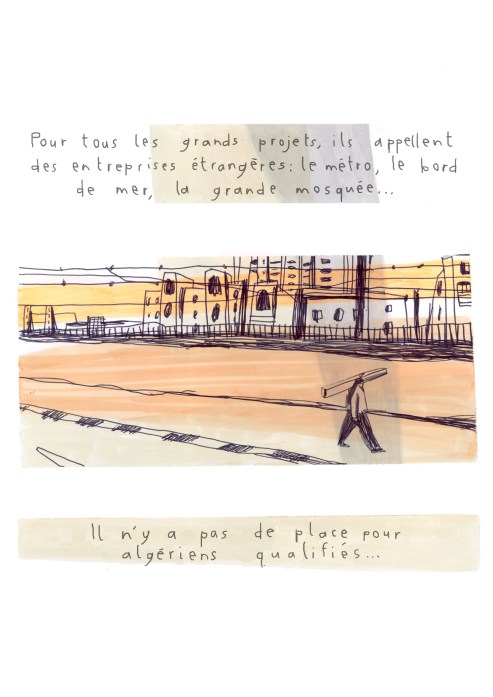 Pour tous les grands projets, ils appellent
des entreprises étrangères: le métro, le bord
de mer, la grande mosquée...
Il n'y a pas de place pour
algériens qualifiés...